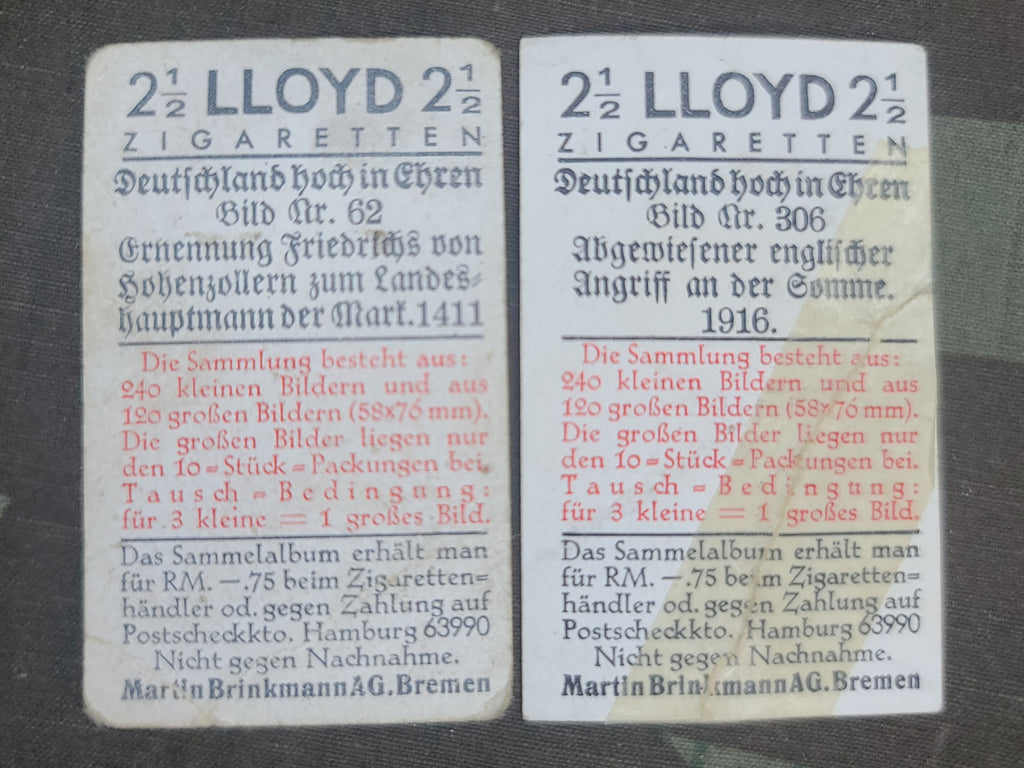 2½ LLOYD 2½
ZIGARETTEN
Deutschland hoch in Ehren
Bild Nr. 62
Ernennung Friedrichs von
Hohenzollern zum Landes-
hauptmann der Mark.1411
Die Sammlung besteht aus:
240 kleinen Bildern und aus
120 großen Bildern (58x76 mm).
Die großen Bilder liegen nur
den 10=Stück=Packungen bei.
Tausch = Bedingung:
für 3 kleine = 1 großes Bild.
Das Sammelalbum erhält man
für RM. —.75 beim Zigaretten=
händler od. gegen Zahlung auf
Postscheckkto. Hamburg 63990
Nicht gegen Nachnahme.
Martin Brinkmann AG. Bremen
2½ LLOYD 2½
ZIGARETTEN
Deutschland hoch in Ehren
Bild Nr. 306
Abgewiesener englischer
Angriff an der Somme.
1916.
Die Sammlung besteht aus:
240 kleinen Bildern und aus
120 großen Bildern (58x76 mm).
Die großen Bilder liegen nur
den 10=Stück=Packungen bei.
Tausch = Bedingung:
für 3 kleine = 1 großes Bild.
Das Sammelalbum erhält man
für RM. —.75 beim Zigaretten=
händler od. gegen Zahlung auf
Postscheckkto. Hamburg 63990
Nicht gegen Nachnahme.
Martin Brinkmann AG. Bremen